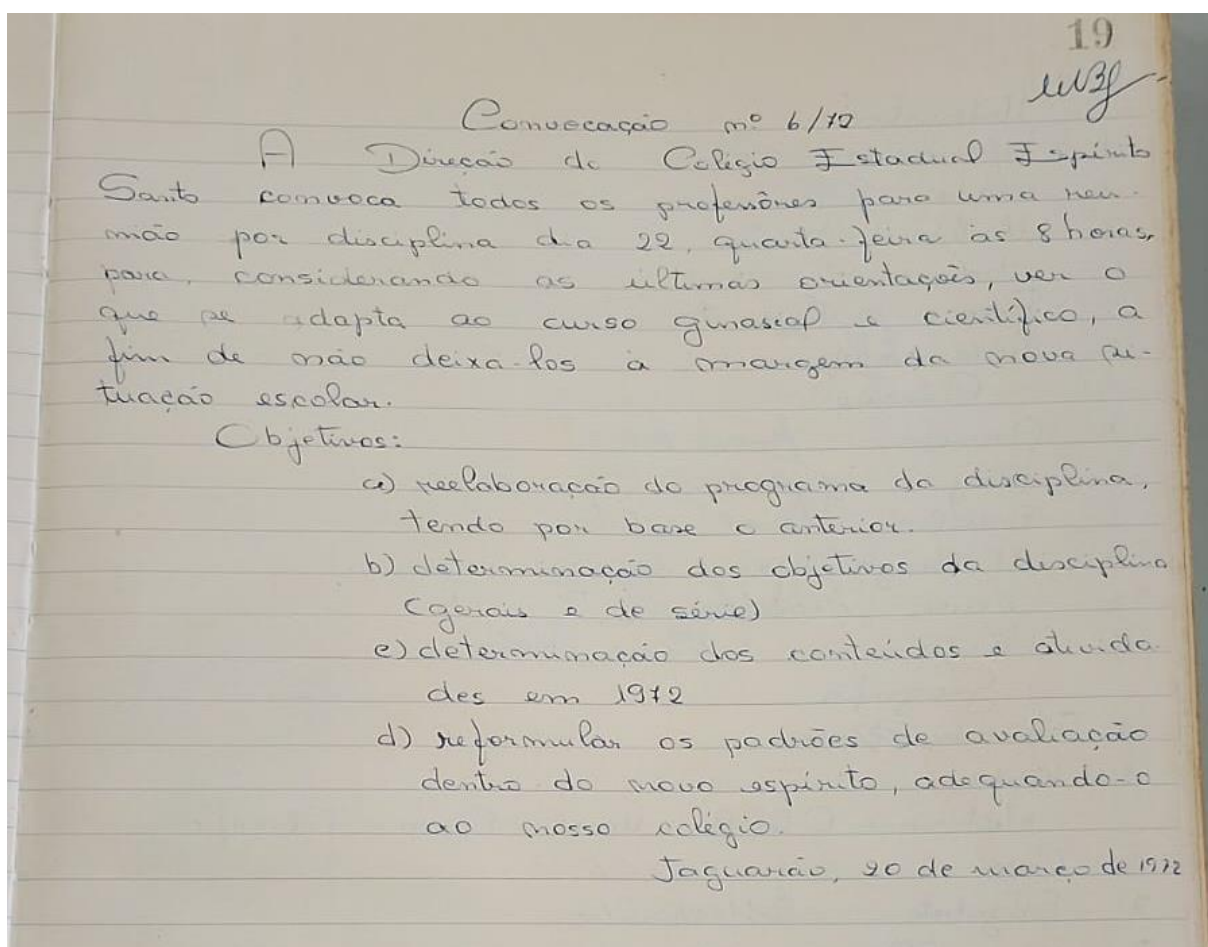 19
Convocação nº 6/72
A Direção do Colégio Estadual Espírito
Santo convoca todos os professôres para uma reu-
nião por disciplina dia 22, quarta-feira às 8 horas,
para, considerando as últimas orientações, ver o
que se adapta ao curso ginasial e científico, a
fim de não deixa-los à margem da nova si-
tuação escolar.
Objetivos:
a) reelaboração do programa da disciplina,
tendo por base o anterior.
b) determinação dos objetivos da disciplina
(gerais e de série)
c) determinação dos conteúdos e ativida-
des em 1972
d) reformular os padrões de avaliação
dentro do novo espírito, adequando-o
ao nosso colégio.
Jaguarão, 20 de março de 1972